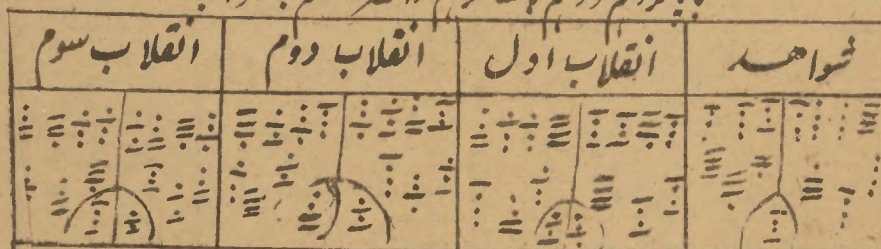 شواهد
انقلاب اول
انقلاب دوم
انقلاب سوم